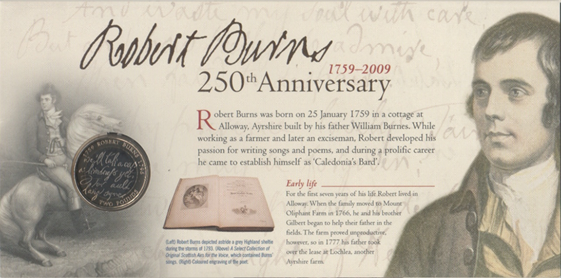 And waste my soul with care
But
admire
Robert Burns
1759–2009
250th Anniversary
Robert Burns was born on 25 January 1759 in a cottage at
Alloway, Ayrshire built by his father William Burnes. While
working as a farmer and later an exciseman, Robert developed his
passion for writing songs and poems, and during a prolific career
he came to establish himself as 'Caledonia's Bard'.
1759 ROBERT BURNS 1796
TWO POUNDS
Early life
For the first seven years of his life Robert lived in
Alloway. When the family moved to Mount
Oliphant Farm in 1766, he and his brother
Gilbert began to help their father in the
fields. The farm proved unproductive,
however, so in 1777 his father took
over the lease at Lochlea, another
Ayrshire farm.
(Left) Robert Burns depicted astride a grey Highland sheltie
during the storms of 1795. (Above) A Select Collection of
Original Scottish Airs for the Voice, which contained Burns'
songs. (Right) Coloured engraving of the poet.